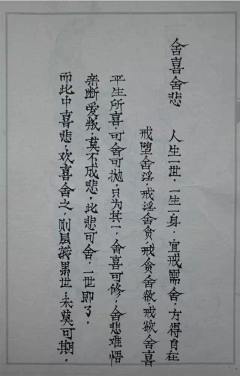 舍喜舍悲
人生一世·一生一身·宜戒需舍·方得自在
戒堕舍淫·戒淫舍贪·戒贪舍欲·戒欲舍喜
平生所喜·可舍可抛·只为其一·舍喜可修·舍悲难悟
亲断爱叛·莫不成悲·此悲可舍·一世即了，
而此中喜悲·欢喜舍之·则晨 累世·未莫可期，